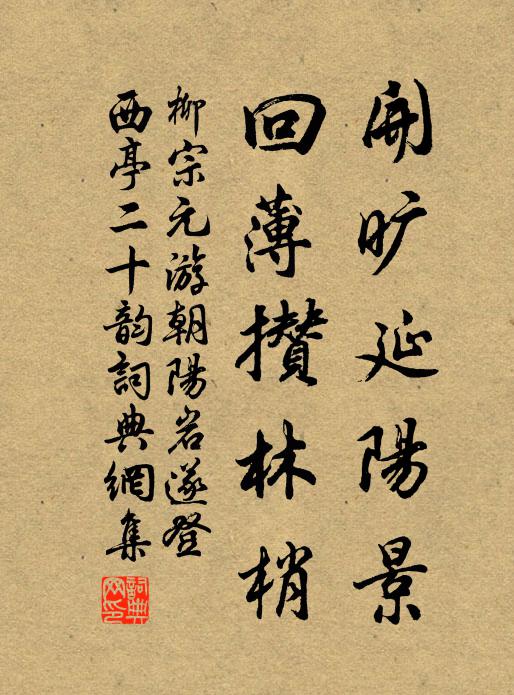 開旷延陽景
回薄攢林梢
柳宗元游朝陽岩遂登
西亭二十韵詞典網集
詞典网印